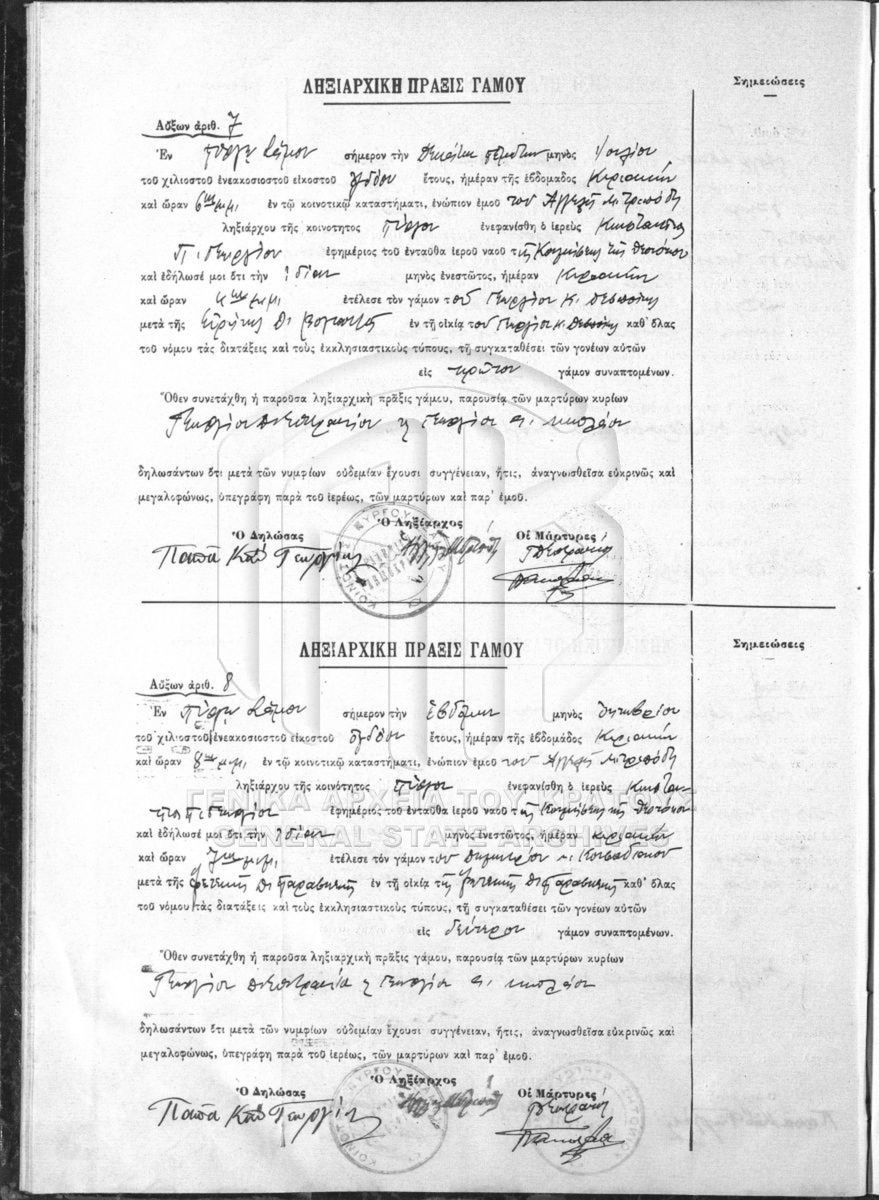 ΛΗΞΙΑΡΧΙΚΗ ΠΡΑΞΙΣ ΓΑΜΟΥ
Σημειώσεις
Αὔξων ἀριθ. 7
Ἐν Πύργῳ Σάμου σήμερον τὴν Δεκάτην πέμπτην μηνὸς Ἰουλίου
τοῦ χιλιοστοῦ ἐνεακοσιοστοῦ εἰκοστοῦ ὀγδόου ἔτους, ἡμέραν τῆς ἑβδομάδος Κυριακὴν
καὶ ὥραν 6 μ.μ. ἐν τῷ κοινοτικῷ καταστήματι, ἐνώπιον ἐμοῦ τοῦ Ἀγγελῆ
ληξιάρχου τῆς κοινοτητος Πύργου ἐνεφανίσθη ὁ ἱερεὺς Κωσταντῖνος
Π. Γεωργίου ἐφημέριος τοῦ ἐνταῦθα ἱεροῦ ναοῦ τῆς Κοιμήσεως τῆς Θεοτόκου
καὶ ἐδήλωσέ μοι ὅτι τὴν ἰδίαν μηνὸς ἐνεστῶτος, ἡμέραν Κυριακὴν
καὶ ὥραν μ.μ. ἐτέλεσε τὸν γάμον τοῦ Γεωργίου Κ.
μετὰ τῆς Εἰρήνης Δ. ἐν τῇ οἰκίᾳ τοῦ Γεωργίου Κ. καθ᾽ ὅλας
τοῦ νόμου τὰς διατάξεις καὶ τοὺς ἐκκλησιαστικοὺς τύπους, τῇ συγκαταθέσει τῶν γονέων αὐτῶν
εἰς πρῶτον γάμον συναπτομένων.
Ὅθεν συνετάχθη ἡ παροῦσα ληξιαρχικὴ πρᾶξις γάμου, παρουσίᾳ τῶν μαρτύρων κυρίων
Γεωργίου
δηλωσάντων ὅτι μετὰ τῶν νυμφίων οὐδεμίαν ἔχουσι συγγένειαν, ἥτις, ἀναγνωσθεῖσα εὐκρινῶς καὶ
μεγαλοφώνως, ὑπεγράφη παρὰ τοῦ ἱερέως, τῶν μαρτύρων καὶ παρ᾽ ἐμοῦ.
Ὁ Δηλώσας Ὁ Ληξίαρχος Οἱ Μάρτυρες
Παπᾶ Γεωργίου
ΛΗΞΙΑΡΧΙΚΗ ΠΡΑΞΙΣ ΓΑΜΟΥ
Σημειώσεις
Αὔξων ἀριθ. 8
Ἐν Πύργῳ Σάμου σήμερον τὴν ἑβδόμην μηνὸς Ὀκτωβρίου
τοῦ χιλιοστοῦ ἐνεακοσιοστοῦ εἰκοστοῦ ὀγδόου ἔτους, ἡμέραν τῆς ἑβδομάδος Κυριακὴν
καὶ ὥραν 8 μ.μ. ἐν τῷ κοινοτικῷ καταστήματι, ἐνώπιον ἐμοῦ τοῦ Ἀγγελῆ
ληξιάρχου τῆς κοινότητος Πύργου ἐνεφανίσθη ὁ ἱερεὺς Κωσταν-
τῖνος Π. Γεωργίου ἐφημέριος τοῦ ἐνταῦθα ἱεροῦ ναοῦ τῆς Κοιμήσεως τῆς Θεοτόκου
ΓΕΝΙΚΑ ΑΡΧΕΙΑ ΤΟΥ ΚΡΑΤΟΥΣ
GENERAL STATE ARCHIVES
καὶ ἐδήλωσέ μοι ὅτι τὴν ἰδίαν μηνὸς ἐνεστῶτος, ἡμέραν Κυριακὴν
καὶ ὥραν 7 μ.μ. ἐτέλεσε τὸν γάμον τοῦ Δημητρίου
μετὰ τῆς Δ. ἐν τῇ οἰκίᾳ τῆς Δ. καθ᾽ ὅλας
τοῦ νόμου τὰς διατάξεις καὶ τοὺς ἐκκλησιαστικοὺς τύπους, τῇ συγκαταθέσει τῶν γονέων αὐτῶν
εἰς δεύτερον γάμον συναπτομένων.
Ὅθεν συνετάχθη ἡ παροῦσα ληξιαρχικὴ πρᾶξις γάμου, παρουσίᾳ τῶν μαρτύρων κυρίων
Γεωργίου
δηλωσάντων ὅτι μετὰ τῶν νυμφίων οὐδεμίαν ἔχουσι συγγένειαν, ἥτις, ἀναγνωσθεῖσα εὐκρινῶς καὶ
μεγαλοφώνως, ὑπεγράφη παρὰ τοῦ ἱερέως, τῶν μαρτύρων καὶ παρ᾽ ἐμοῦ.
Ὁ Δηλώσας Ὁ Ληξίαρχος Οἱ Μάρτυρες
Παπᾶ Γεωργίου